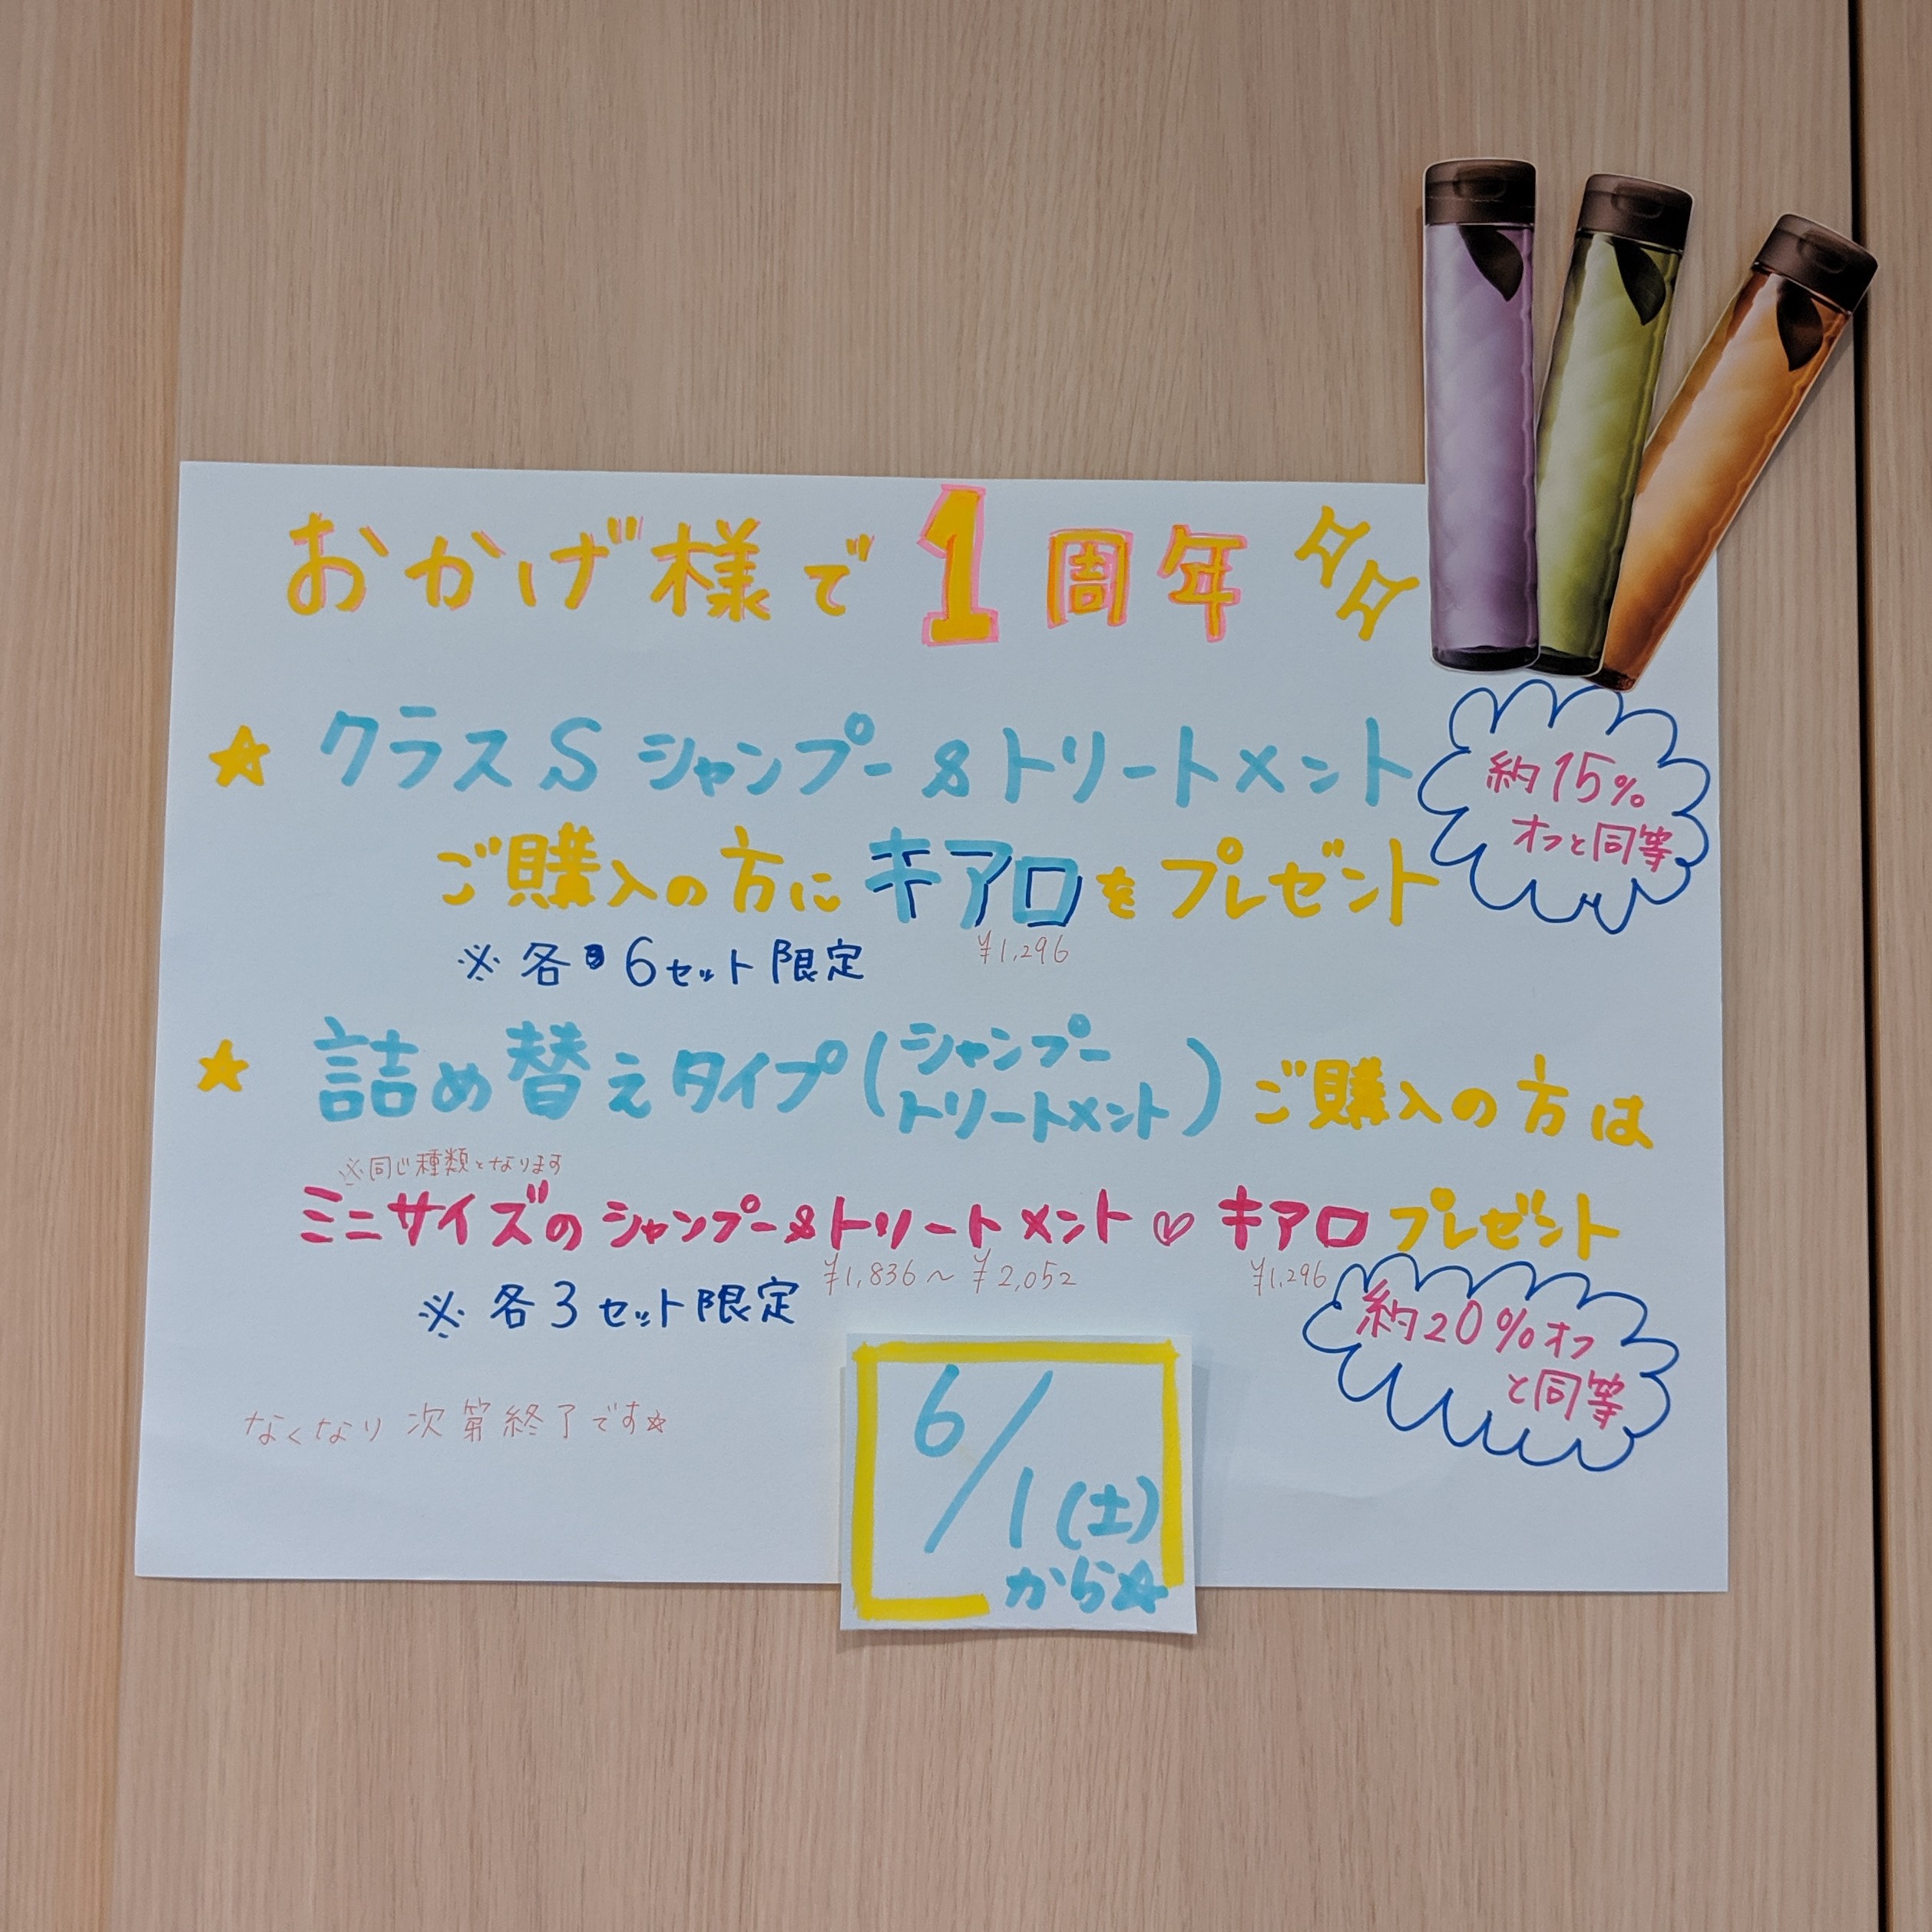 おかげ様で1周年
★ クラスS シャンプー&トリートメント
約15%
オフと同等
ご購入の方に キアロをプレゼント
¥1,296
※各6セット限定
★ 詰め替えタイプ(シャンプー トリートメント)ご購入の方は
※同じ種類となります
ミニサイズの シャンプー&トリートメント♡ キアロ プレゼント
¥1,836〜¥2,052
¥1,296
※各3セット限定
約20%オフ
と同等
なくなり次第終了です☆
6/1(土)
から☆